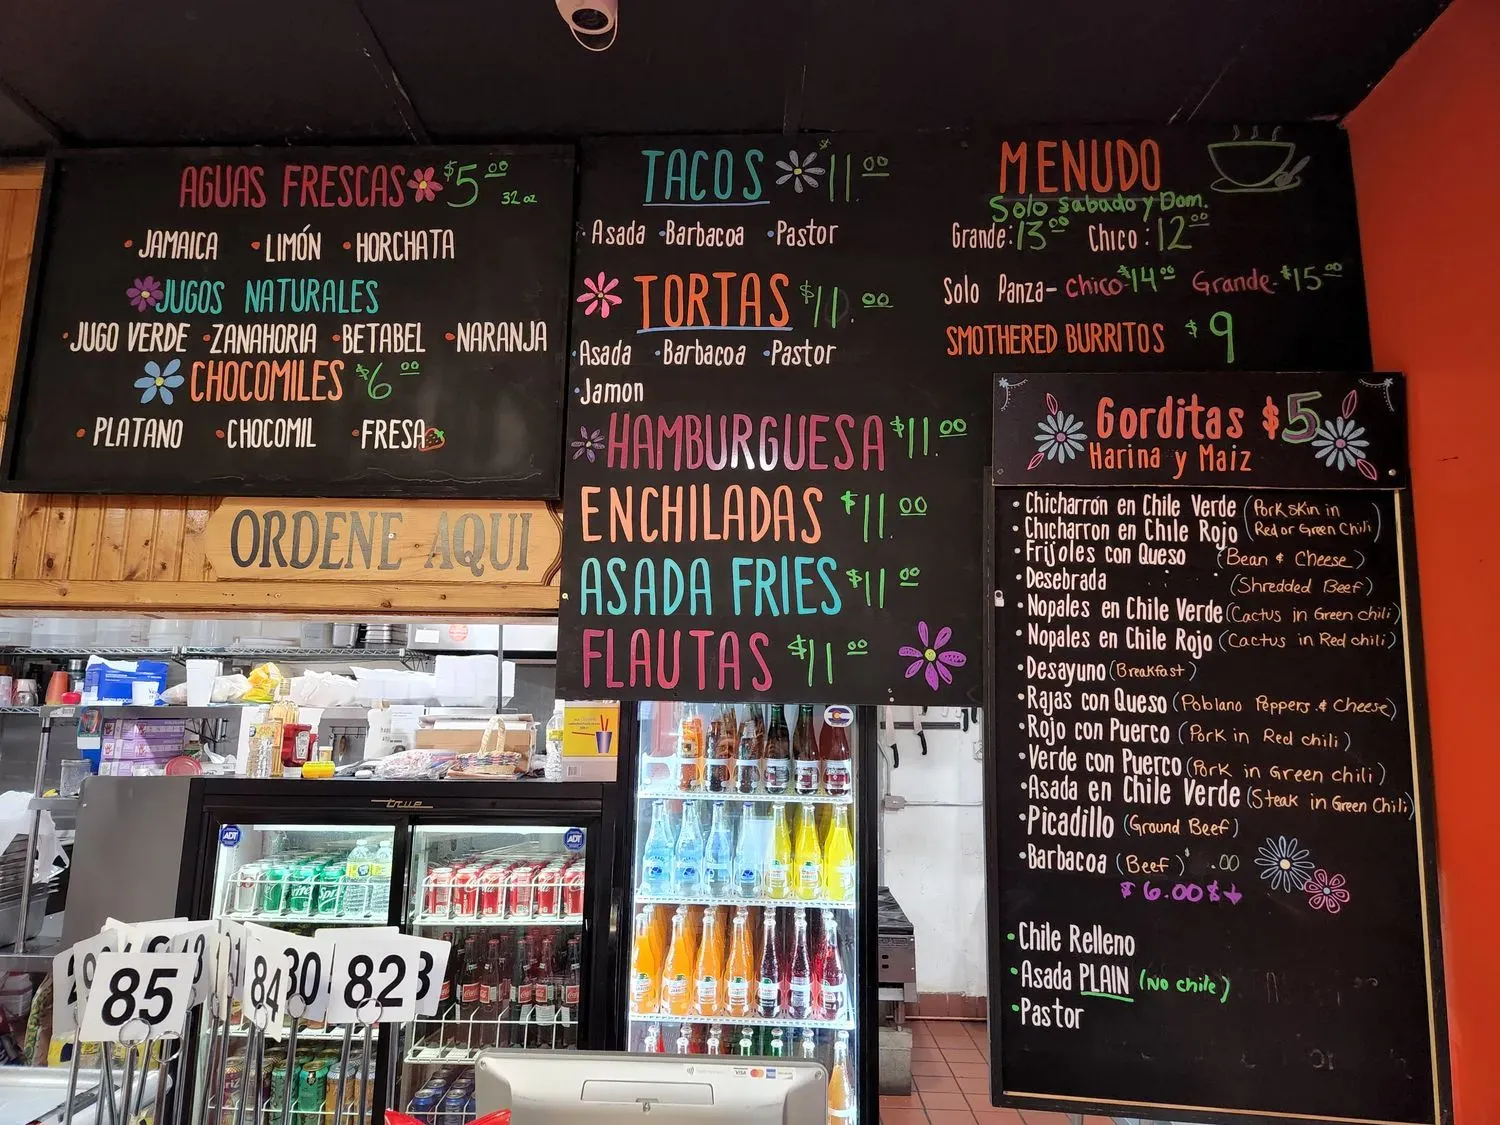 AGUAS FRESCAS $5.00 32 oz
• JAMAICA • LIMÓN • HORCHATA
JUGOS NATURALES
• JUGO VERDE • ZANAHORIA • BETABEL • NARANJA
CHOCOMILES $6.00
• PLATANO • CHOCOMIL • FRESA
ORDENE AQUI
TACOS $11.00
• Asada • Barbacoa • Pastor
TORTAS $11.00
• Asada • Barbacoa • Pastor
• Jamon
HAMBURGUESA $11.00
ENCHILADAS $11.00
ASADA FRIES $11.00
FLAUTAS $11.00
MENUDO
Solo Sabado y Dom.
Grande: 13.00 Chico: 12.00
Solo Panza- chico $14.00 Grande- $15.00
SMOTHERED BURRITOS $9
Gorditas $5
Harina y Maiz
• Chicharrón en Chile Verde (Pork Skin in
• Chicharron en Chile Rojo Red or Green Chili)
• Frijoles con Queso (Bean & Cheese)
• Desebrada (Shredded Beef)
• Nopales en Chile Verde (Cactus in Green chili)
• Nopales en Chile Rojo (Cactus in Red chili)
• Desayuno (Breakfast)
• Rajas con Queso (Poblano Peppers & Cheese)
• Rojo con Puerco (Pork in Red chili)
• Verde con Puerco (Pork in Green chili)
• Asada en Chile Verde (Steak in Green Chili)
• Picadillo (Ground Beef)
• Barbacoa (Beef) $ .00
$6.00
• Chile Relleno
• Asada PLAIN (No chile)
• Pastor
true
ADT
ADT
85
84
30
82
3
VISA